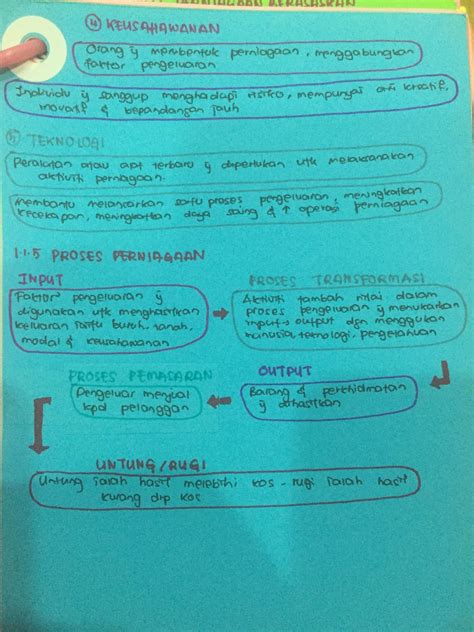 ④ KEUSAHAWANAN
Orang yg membentuk perniagaan, menggabungkan
faktor pengeluaran
Individu yg sanggup menghadapi risiko, mempunyai ciri kreatif,
inovatif & berpandangan jauh
⑤ TEKNOLOGI
Peralatan atau apl terbaru yg diperlukan utk melaksanakan
aktiviti perniagaan.
membantu melancarkan satu proses pengeluaran, meningkatkan
kecekapan, meningkatkan daya saing & ↑ operasi perniagaan
1.1.5 PROSES PERNIAGAAN
INPUT
Faktor pengeluaran yg
digunakan utk menghasilkan
keluaran iaitu buruh, tanah,
modal & keusahawanan
PROSES TRANSFORMASI
Aktiviti tambah nilai dalam
proses pengeluaran yg menukarkan
input → output dgn menggunakan
manusia, teknologi, pengetahuan
OUTPUT
Barang & perkhidmatan
yg dihasilkan
PROSES PEMASARAN
Pengeluar menjual
kpd pelanggan
UNTUNG/RUGI
Untung ialah hasil melebihi kos - rugi ialah hasil
kurang drp kos